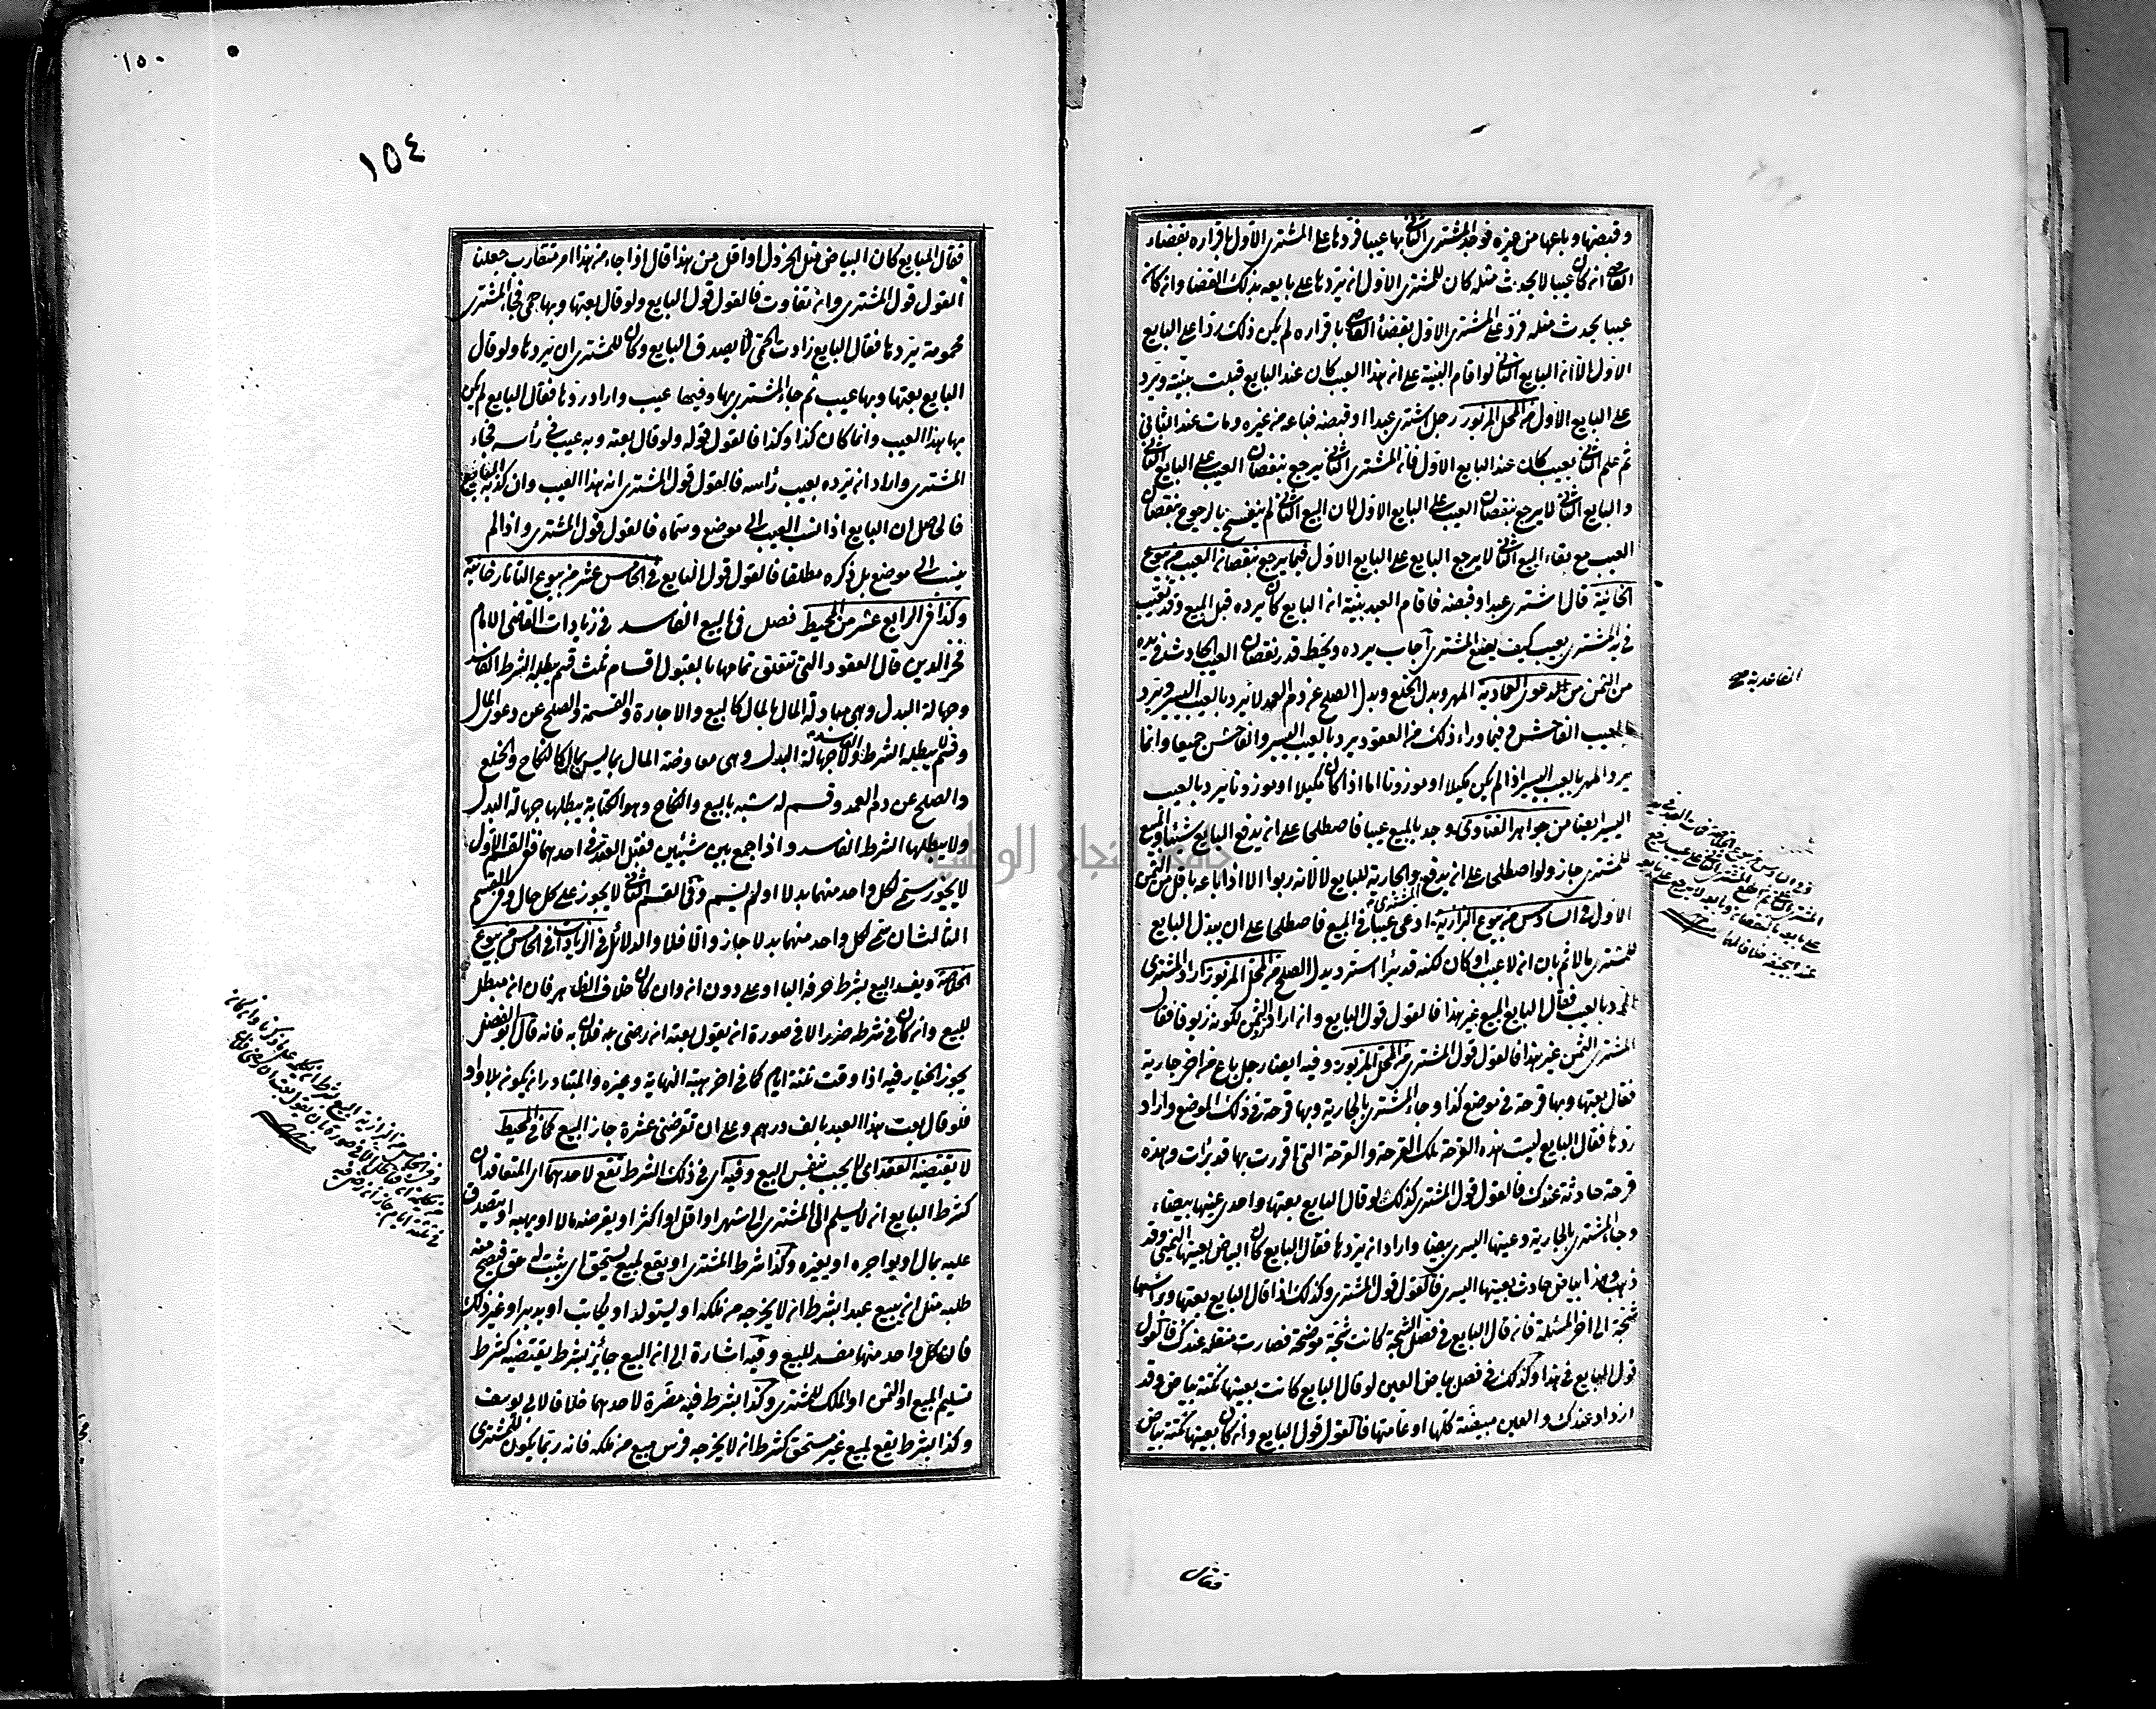 وقبضها وباعها من غيره فوجد المشترى الثانى بها عيبا فردها على المشترى الاول باقراره بقضاء
القاضى ان كان عيبا لا يحدث مثله كان للمشترى الاول ان يردها على بايعه بذلك القضا وان كان
عيبا يحدث مثله فرد على المشترى الاول بقضاء القاضى باقراره لم يكن ذلك ردا على البايع
الاول الا ان البايع الثانى لو اقام البينة على ان هذا العيب كان عند البايع قبلت بينته ويرد
على البايع الاول من المحل المزبور رجل اشترى عبدا وقبضه فباعه من غيره ومات عند الثانى
ثم علم الثانى بعيب كان عند البايع الاول فان المشترى الثانى يرجع بنقصان العيب على البايع الثانى
والبايع الثانى لا يرجع بنقصان العيب على البايع الاول لان البيع الثانى لم ينفسخ بالرجوع بنقصان
العيب مع بقاء البيع الثانى لا يرجع البايع على البايع الاول فيما يرجع بنقصان العيب من بيوع
الخانية قال اشترى عبدا وقبضه فاقام العبد بينة ان البايع كان يرده قبل البيع وقد تعيب
فى يد المشترى بعيب كيف يصنع المشترى اجاب يرده ويحط قدر نقصان العيب الحادث فى يده
من الثمن من دعوى العمادية المهر وبدل الخلع وبدل الصلح عن دم العمد لا يرد بالعيب اليسير ويرد
بالعيب الفاحش وفيما وراء ذلك من العقود يرد بالعيب اليسير والفاحش جميعا وانما
يرد المهر بالعيب اليسير اذا لم يكن مكيلا او موزونا اما اذا كان مكيلا او موزونا يرد بالعيب
اليسير ايضا من جواهر الفتاوى وجد بالمبيع عيبا فاصطلحا على ان يدفع البايع شيئا والمبيع
للمشترى جاز ولو اصطلحا على ان يدفع المشترى والجارية للبايع لا لانه ربوا الا اذا باعه باقل من الثمن
الاول فى السادس من بيوع البزازية ادعى عيبا فى المبيع فاصطلحا على ان يبذل البايع
للمشترى مالا ثم بان انه لا عيب او كان لكنه قد برا استرد بدل الصلح من المحل المزبور اراد المشترى
الرد بالعيب فقال البايع المبيع غير هذا فالقول قول البايع وان اراد رد الثمن لكونه زيوفا فقال
المشترى الثمن غير هذا فالقول قول المشترى من المحل المزبور وفيه ايضا رجل باع من اخر جارية
فقال بعتها وبها قرحة فى موضع كذا وجاء المشترى بالجارية وبها قرحة فى ذلك الموضع واراد
ردها فقال البايع ليست هذه القرحة تلك القرحة والقرحة التى اقررت بها قد برات وهذه
قرحة حادثة عندك فالقول قول المشترى كذلك لو قال البايع بعتها واحدى عينيها بيضاء
وجاء المشترى بالجارية وعينها اليسرى بيضا واراد ان يردها فقال البايع كان البياض بعينها اليمنى وقد
ذهب وهذا بياض حادث بعينها اليسرى فالقول قول المشترى وكذلك اذا قال البايع بعتها وبراسها
شجة الى اخر المسئلة فان قال البايع فى فصل الشجة كانت شجة موضحة فصارت منقلة عندك فالقول
قول البايع فى هذا وكذلك فى فصل بياض العين لو قال البايع كانت بعينها نكتة بياض وقد
ازداد عندك والعين مبيضة كلها او عامتها فالقول قول البايع وان كان بعينها نكتة بياض
فقال
١٥٠
١٥٤
فقال البايع كان البياض مثل الخردل او اقل من هذا قال اذا جاء من هذا امر متقارب جعلنا
القول قول المشترى وان تفاوت فالقول قول البايع ولو قال بعتها وبها حمى فجاء المشترى
محمومة يردها فقال البايع زادت الحمى لا يصدق البايع وكان للمشترى ان يردها ولو قال
البايع بعتها وبها عيب ثم جاء المشترى بها وفيها عيب واراد ردها فقال البايع لم يكن
بها هذا العيب وانما كان كذا وكذا فالقول قوله ولو قال بعته وبه عيب فى رأسه فجاء
المشترى واراد ان يرده بعيب رأسه فالقول قول المشترى انه هذا العيب وان كذبه البايع
فالحاصل ان البايع اذا نسب العيب الى موضع وسماه فالقول قول المشترى واذا لم
ينسب الى موضع بل ذكره مطلقا فالقول قول البايع فى الخامس عشر من بيوع التاتارخانية
وكذا فى الرابع عشر من المحيط فصل فى البيع الفاسد فى زيادات القاضى الامام
فخر الدين قال العقود التى تتعلق تمامها بالقبول اقسام ثلث قسم يبطله الشرط الفاسد
وجهالة البدل وهى مبادلة المال بالمال كالبيع والاجارة والقسمة والصلح عن دعوى المال
وقسم لا يبطله الشرط الفاسد ولا جهالة البدل وهى معاوضة المال بما ليس بمال كالنكاح والخلع
والصلح عن دم العمد وقسم له شبه بالبيع والنكاح وهو الكتابة يبطلها جهالة البدل
ولا يبطلها الشرط الفاسد واذا جمع بين شيئين فقبل العقد فى احدهما ففى القسم الاول
لا يجوز سمى لكل واحد منهما بدلا او لم يسم وفى القسم الثانى لا يجوز على كل حال وفى القسم
الثالث ان سمى لكل واحد منهما بدلا جاز والا فلا والدلائل فى الزيادات فى الخامس من بيوع
الخلاصة ويفسد البيع بشرط حرفه البا او على دون ان وان كان خلاف الظاهر فان ان مبطل
للبيع وان كان فى شرطه ضررا الا فى صورة ان يقول بعته ان رضى به فلان به فانه قال ابو الفضل
يجوز الخيار فيه اذا وقت ثلثة ايام كما فى اخر بيته النهاية وغيره والمتبادر ان يكون بلا واو
فلو قال بعت هذا العبد بالف درهم وعلى ان تقرضنى عشرة جاز البيع كما فى المحيط
لا يقتضيه العقد اى لا يجب بنفس البيع وفيه اى فى ذلك الشرط نفع لاحدهما اى المتعاقدان
كشرط البايع ان لا يسلم الى المشترى الى شهر او اقل او اكثر او يقرضه مالا او يهبه او يتصدق
عليه بمال او يواجره او يعيره وكذا شرط المشترى او يقع لمبيع يستحق اى يثبت له حق فيصح منه
طلبه مثل ان يبيع عبدا بشرط ان لا يخرجه من ملكه او يستولد او يكاتب او يدبر او غير ذلك
فان كل واحد منها مفسد للبيع وفيه اشارة الى ان البيع جائز بشرط يقتضيه كشرط
تسليم المبيع او الثمن او الملك للمشترى وكذا بشرط فيه مضرة لاحدهما خلافا لابى يوسف
وكذا بشرط يقع لمبيع غير مستحق كشرط ان لا يخرجه فرس مبيع من ملكه فانه ربما يكون للمشترى
جامعة النجاح الوطنية